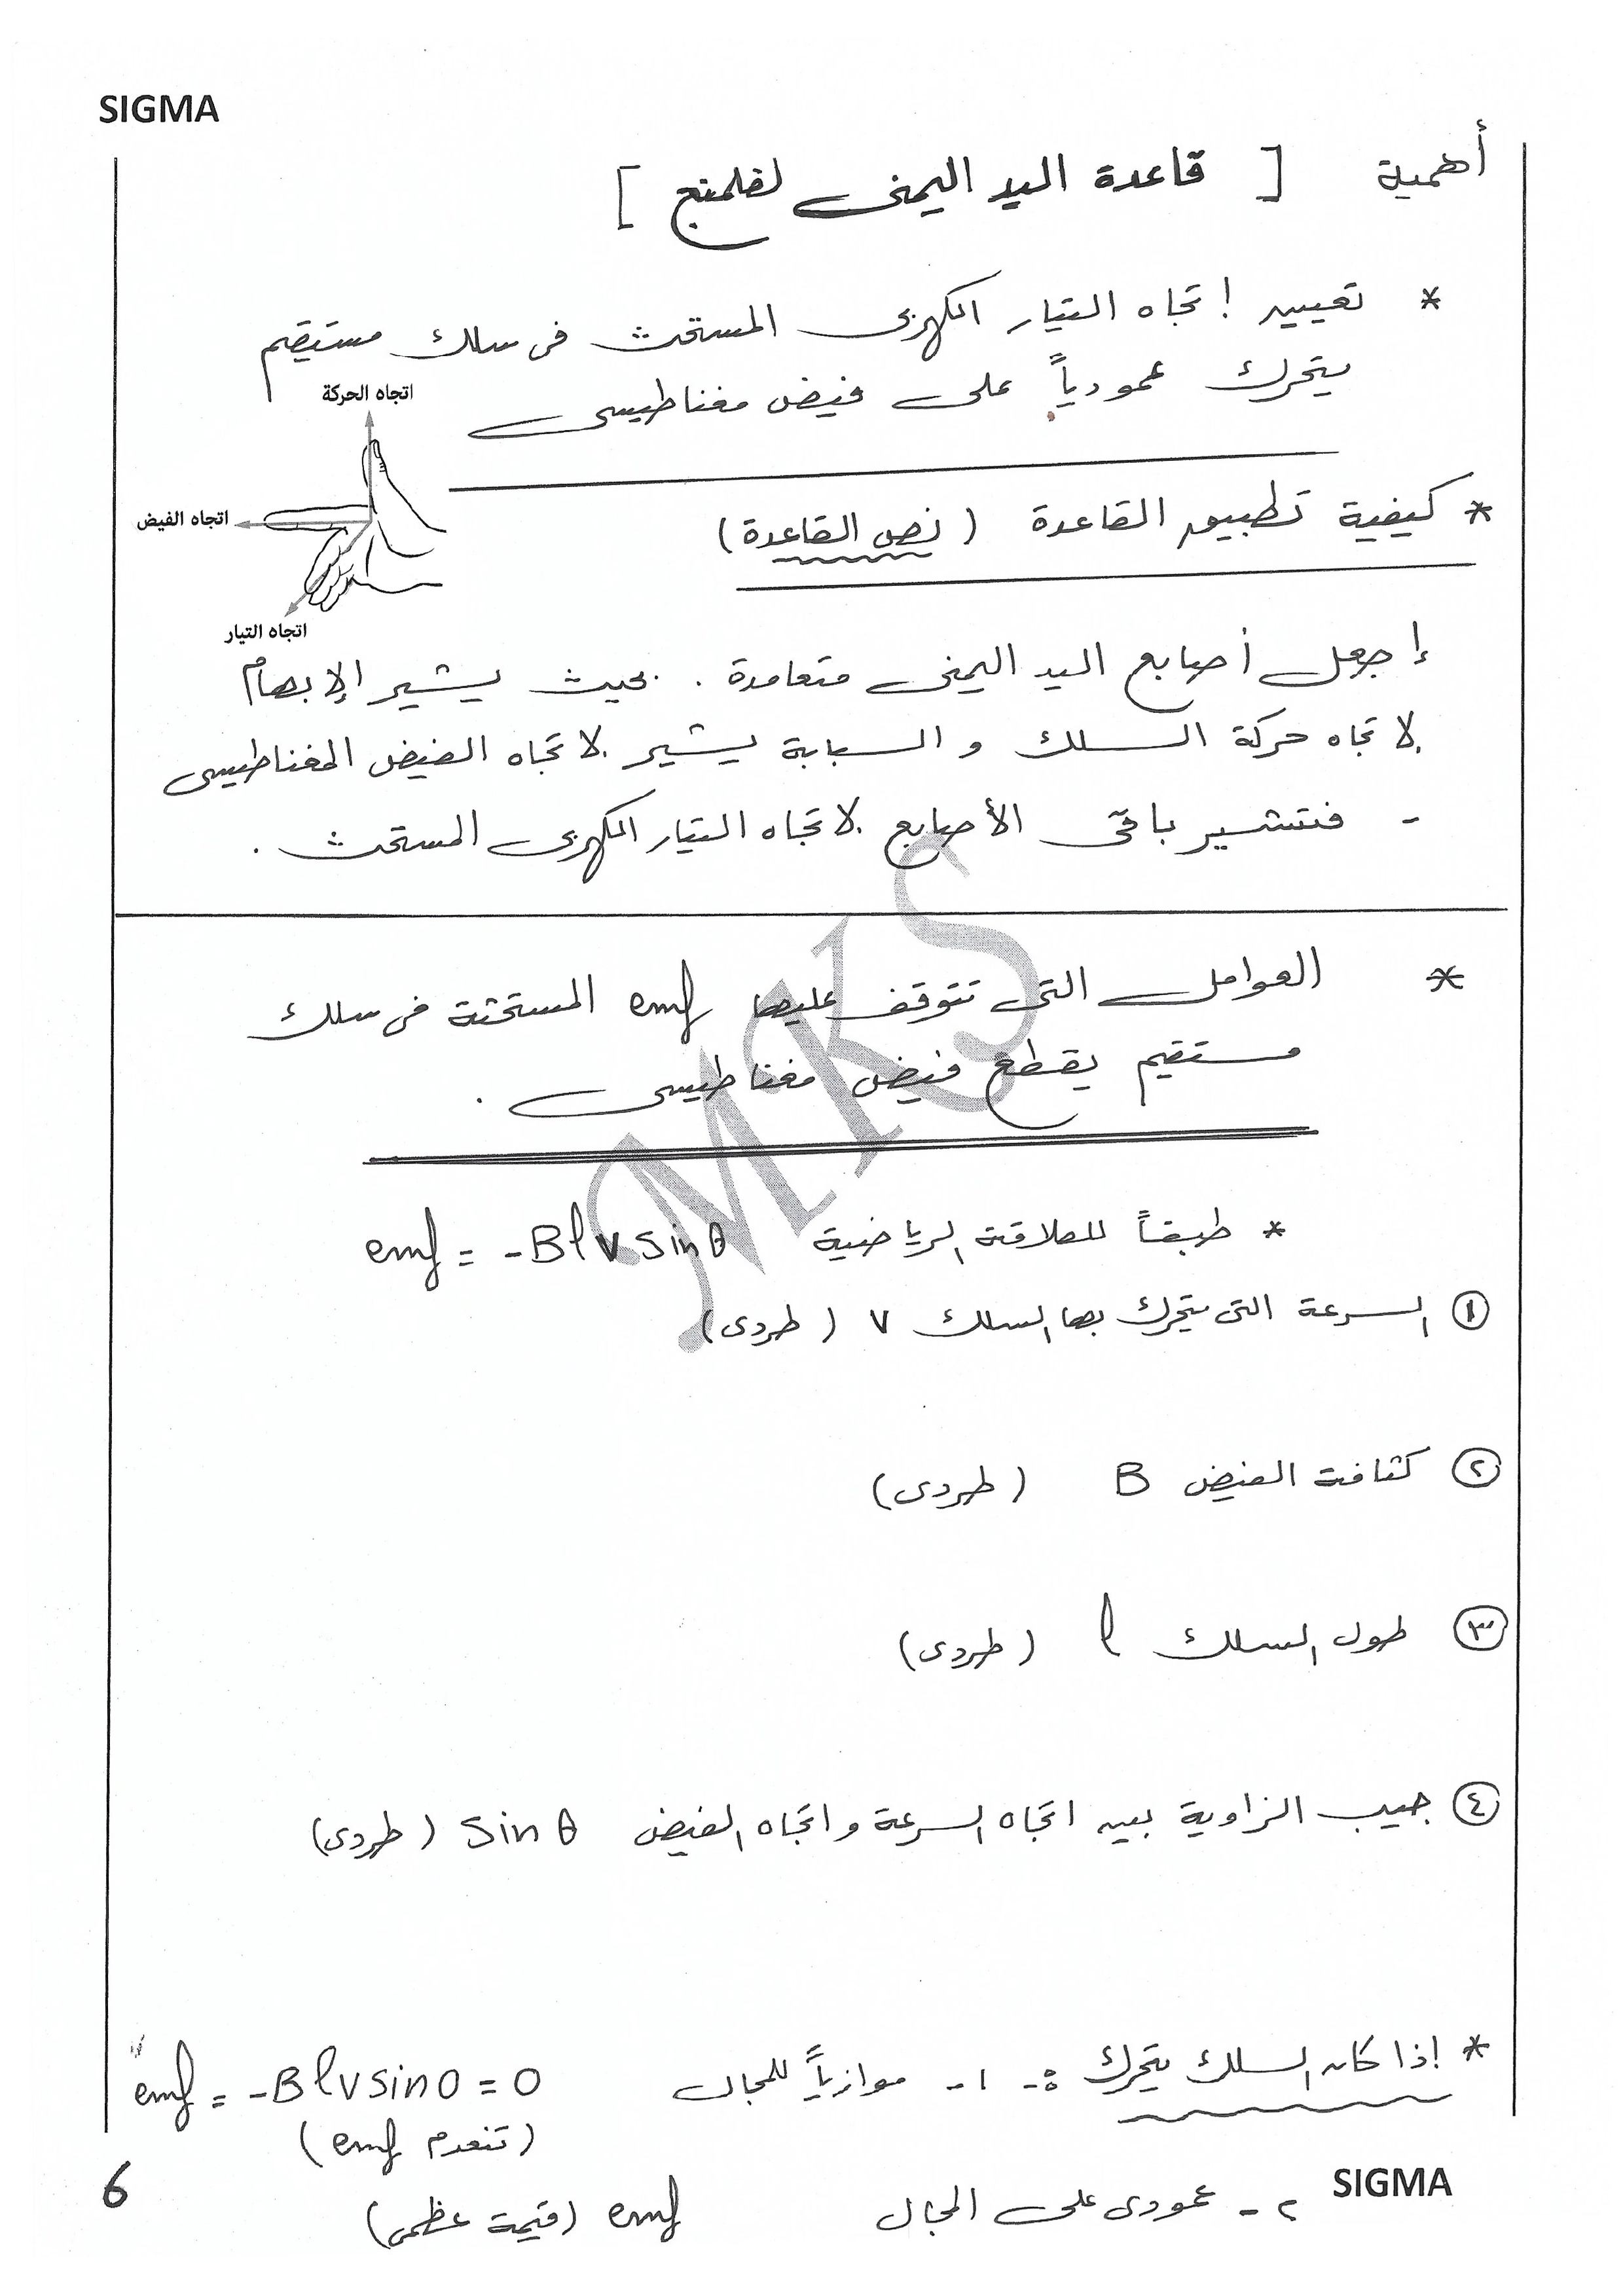 SIGMA
أهمية [ قاعدة اليد اليمنى لفلمنج ]
* تعيين اتجاه التيار الكهربى المستحث فى سلك مستقيم
يتحرك عمودياً على فيض مغناطيسى
اتجاه الحركة
اتجاه الفيض
اتجاه التيار
* كيفية تطبيق القاعدة ( نص القاعدة )
إجعل أصابع اليد اليمنى متعامدة . بحيث يشير الإبهام
لاتجاه حركة السلك و السبابة يشير لاتجاه الفيض المغناطيسى
- فتشير باقى الأصابع لاتجاه التيار الكهربى المستحث .
* العوامل التى تتوقف عليها emf المستحثة فى سلك
مستقيم يقطع فيض مغناطيسى .
MKS
* طبقاً للعلاقة الرياضية emf = -Blv sin θ
١ السرعة التى يتحرك بها السلك v ( طردى )
٢ كثافة الفيض B ( طردى )
٣ طول السلك l ( طردى )
٤ جيب الزاوية بين اتجاه السرعة واتجاه الفيض sin θ ( طردى )
* إذا كان السلك يتحرك :- ١- موازياً للمجال emf = -Blv sin 0 = 0
( تنعدم emf )
٢- عمودى على المجال emf ( قيمة عظمى )
SIGMA
6